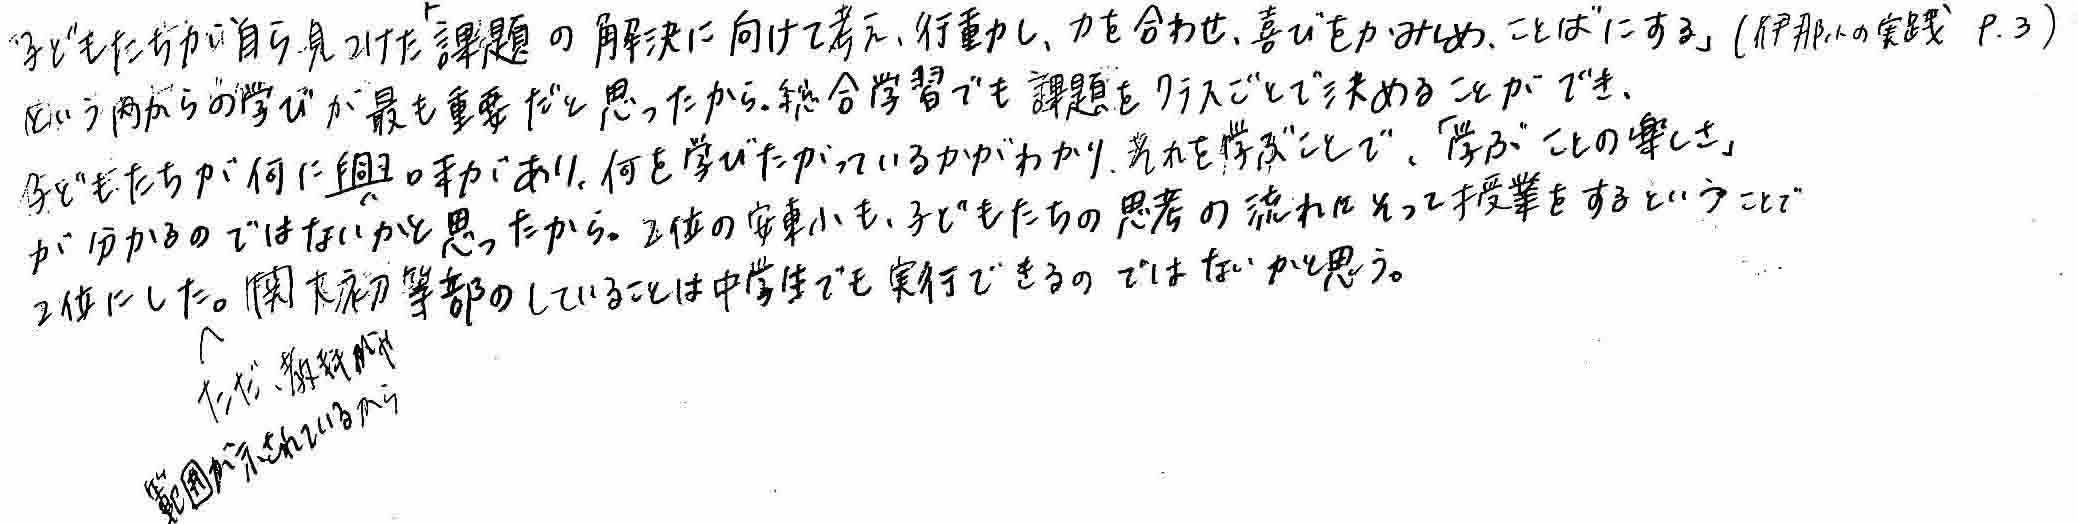 子どもたちが自ら見つけた「課題の解決に向けて考え、行動し、力を合わせ、喜びをかみしめ、ことばにする」(伊那小の実践 P.3)
という内からの学びが最も重要だと思ったから。総合学習でも課題をクラスごとで決めることができ、
子どもたちが何に興味があり、何を学びたがっているかがわかり、それを学ぶことで、「学ぶことの楽しさ」
が分かるのではないかと思ったから。2位の安東小も、子どもたちの思考の流れにそって授業をするということで
2位にした。関大初等部のしていることは中学生でも実行できるのではないかと思う。
ただ、教科がや
範囲が示されているから